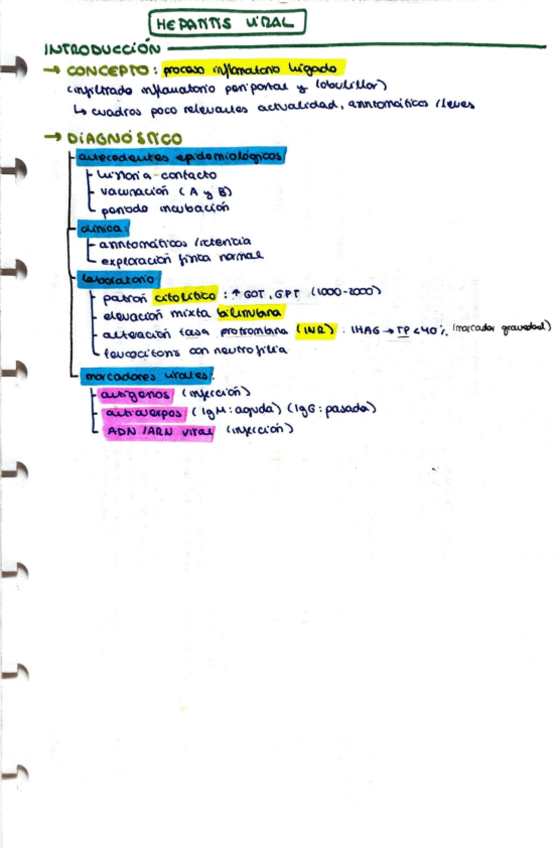 HEPATITIS VIRAL
INTRODUCCIÓN
→ CONCEPTO: proceso inflamatorio hígado
(infiltrado inflamatorio periportal y lobulillar)
↳ cuadros poco relevantes actualidad, asintomáticos / leves
→ DIAGNÓSTICO
antecedentes epidemiológicos
historia contacto
vacunación (A y B)
periodo incubación
clínica:
asintomáticos / ictericia
exploración física normal
laboratorio
patrón citolítico: ↑ GOT, GPT (1000-2000)
elevación mixta bilirrubina
alteración tasa protrombina (INR): IHAG → TP < 40% (marcador gravedad)
leucocitosis con neutrofilia
marcadores virales:
antígenos (infección)
anticuerpos (IgM: aguda) (IgG: pasada)
ADN / ARN viral (infección)